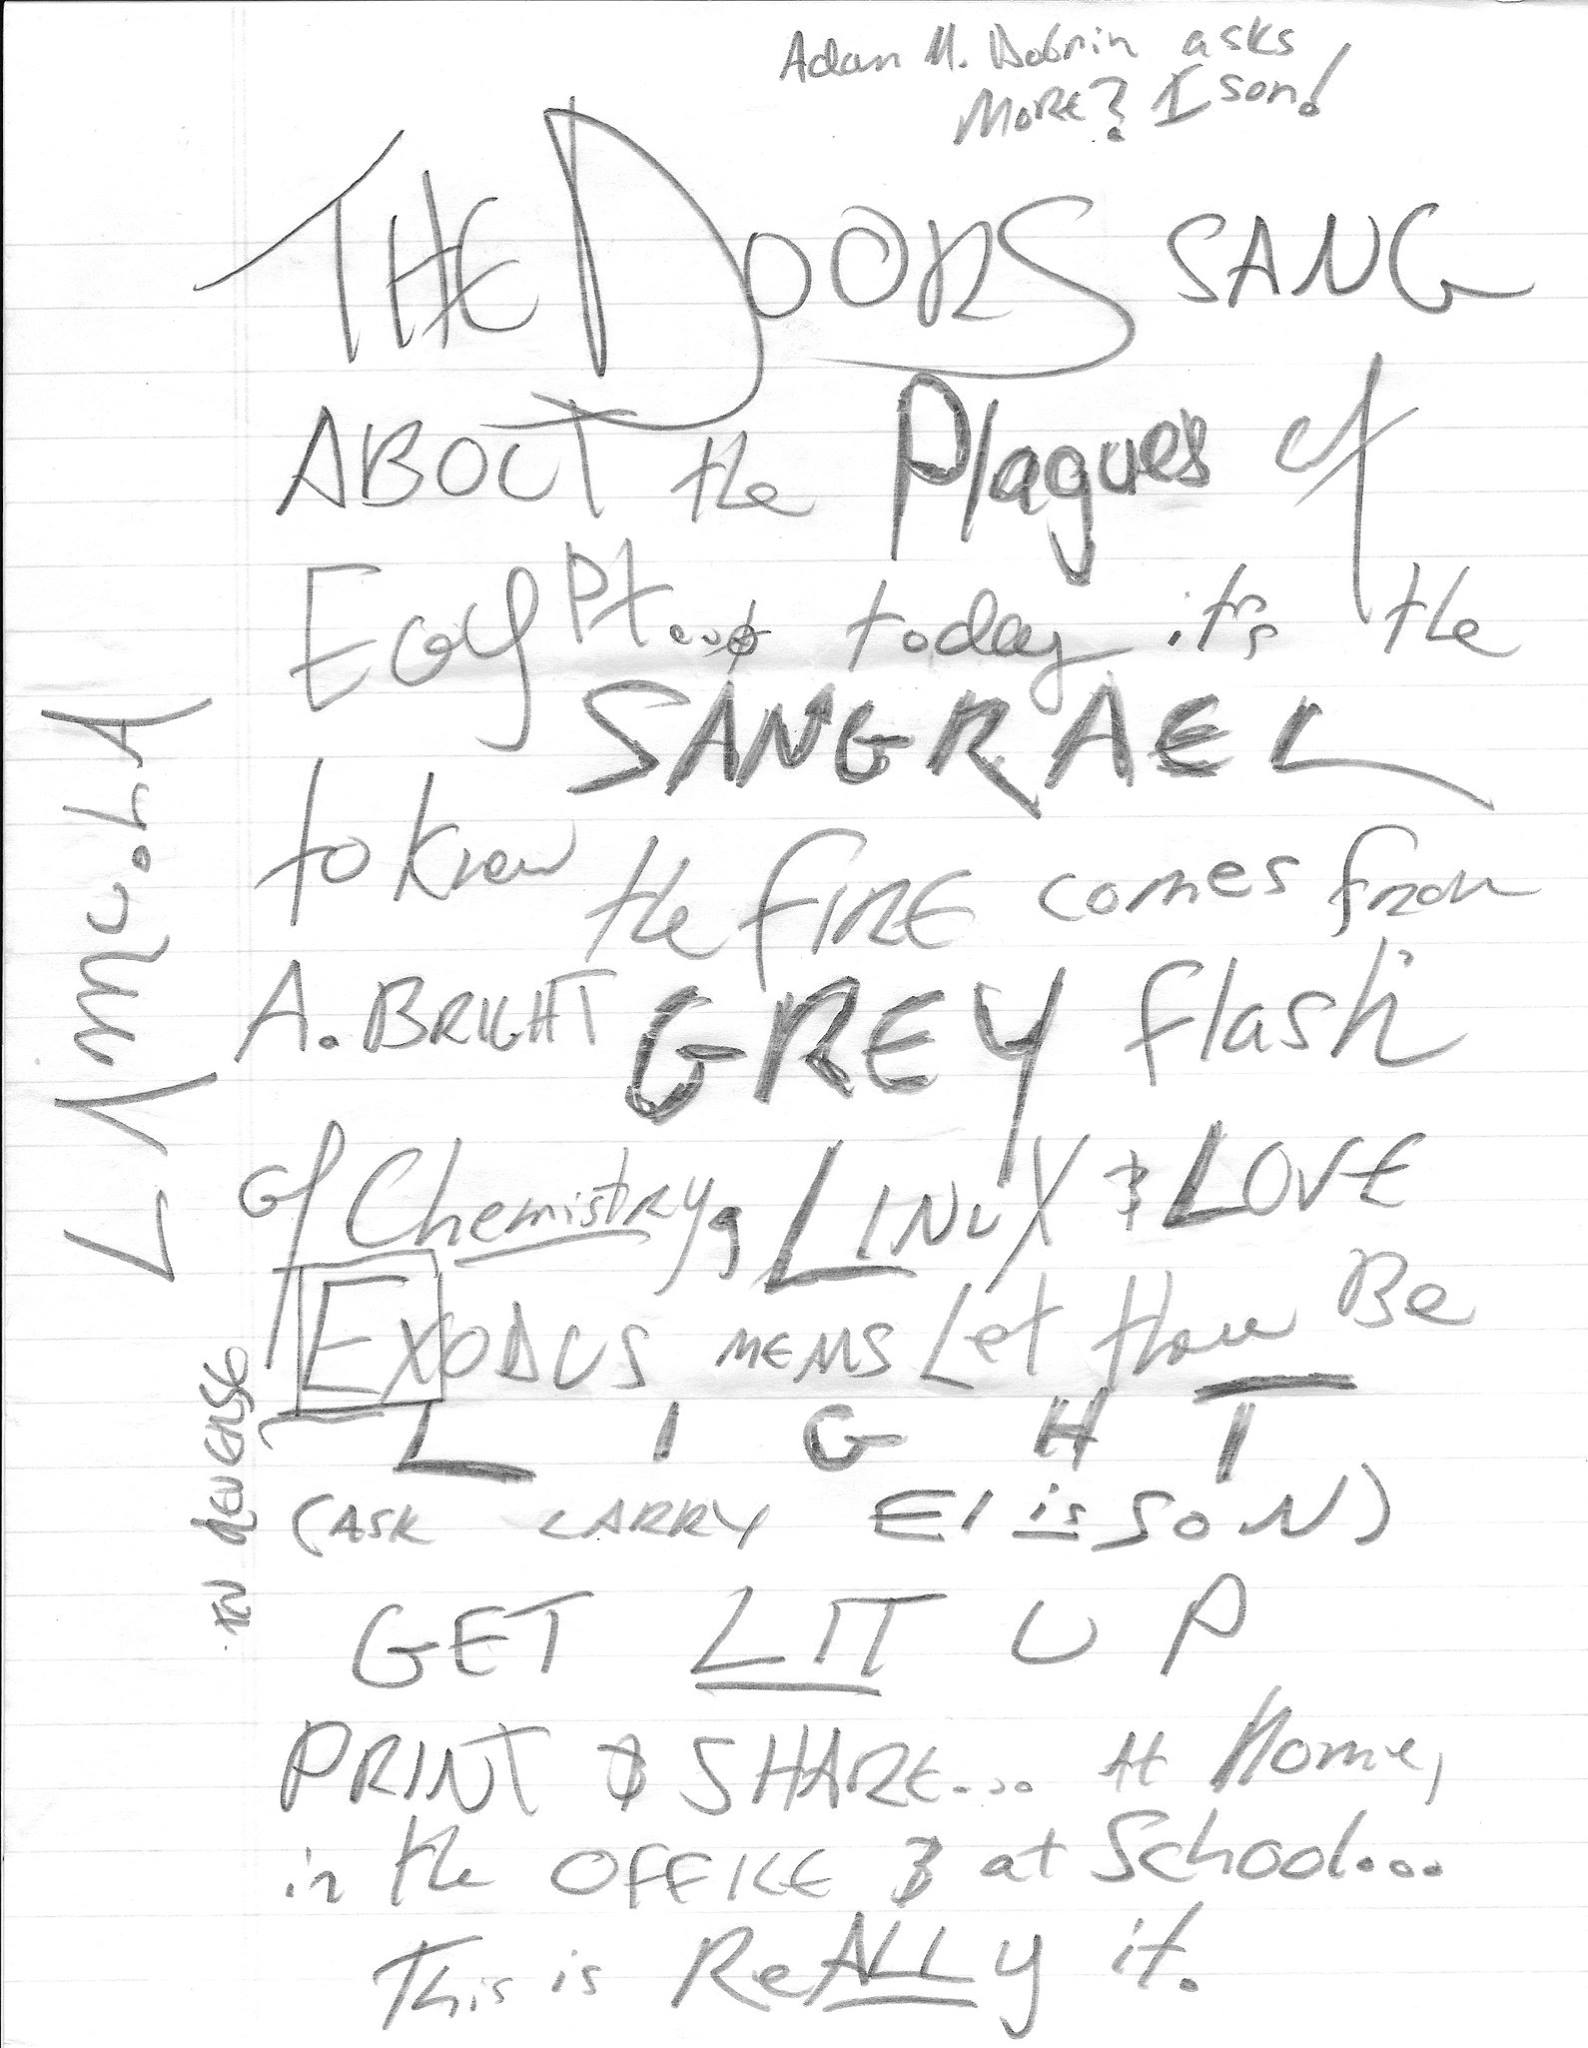 Adam M. Dobrin asks
MORE? I son!
THE DOORS SANG
ABOUT the Plagues of
EGYPt... & today it's the
SANGRAEL
to know the FIRE comes from
A. BRIGHT GREY flash
of Chemistry, LINUX & LOVE
EXODUS MEANS Let there Be
LIGHT
(ASK LARRY El is SON)
GET LIT UP
PRINT & SHARE... At Home,
in the OFFICE & at School...
This is ReALLy it.
IN REVERSE